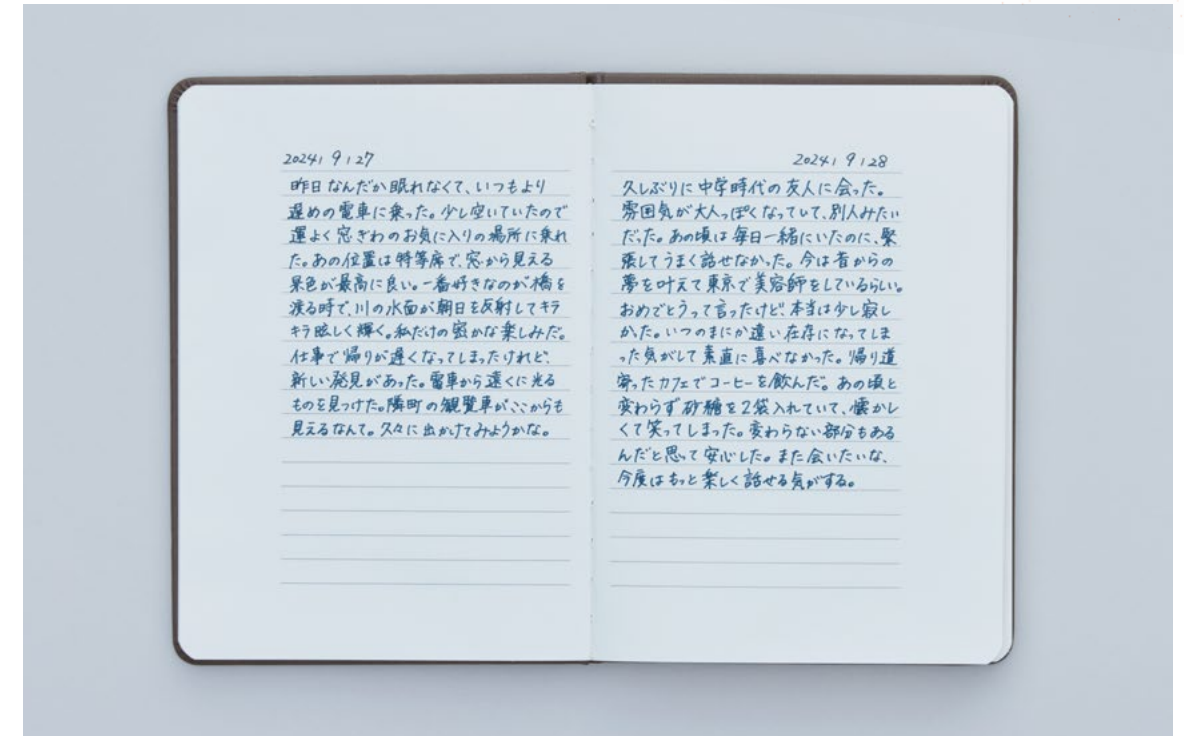 2024, 9, 27
昨日なんだか眠れなくて、いつもより
遅めの電車に乗った。少し空いていたので
運よく窓ぎわのお気に入りの場所に乗れ
た。あの位置は特等席で、窓から見える
景色が最高に良い。一番好きなのが橋を
渡る時で、川の水面が朝日を反射してキラ
キラ眩しく輝く。私だけの密かな楽しみだ。
仕事で帰りが遅くなってしまったけれど、
新しい発見があった。電車から遠くに光る
ものを見つけた。隣町の観覧車がここからも
見えるなんて。久々に出かけてみようかな。
2024, 9, 28
久しぶりに中学時代の友人に会った。
雰囲気が大人っぽくなっていて、別人みたい
だった。あの頃は毎日一緒にいたのに、緊
張してうまく話せなかった。今は昔からの
夢を叶えて東京で美容師をしているらしい。
おめでとうって言ったけど、本当は少し寂し
かった。いつのまにか遠い存在になってしま
った気がして素直に喜べなかった。帰り道
寄ったカフェでコーヒーを飲んだ。あの頃と
変わらず砂糖を2袋入れていて、懐かし
くて笑ってしまった。変わらない部分もある
んだと思って安心した。また会いたいな、
今度はもっと楽しく話せる気がする。